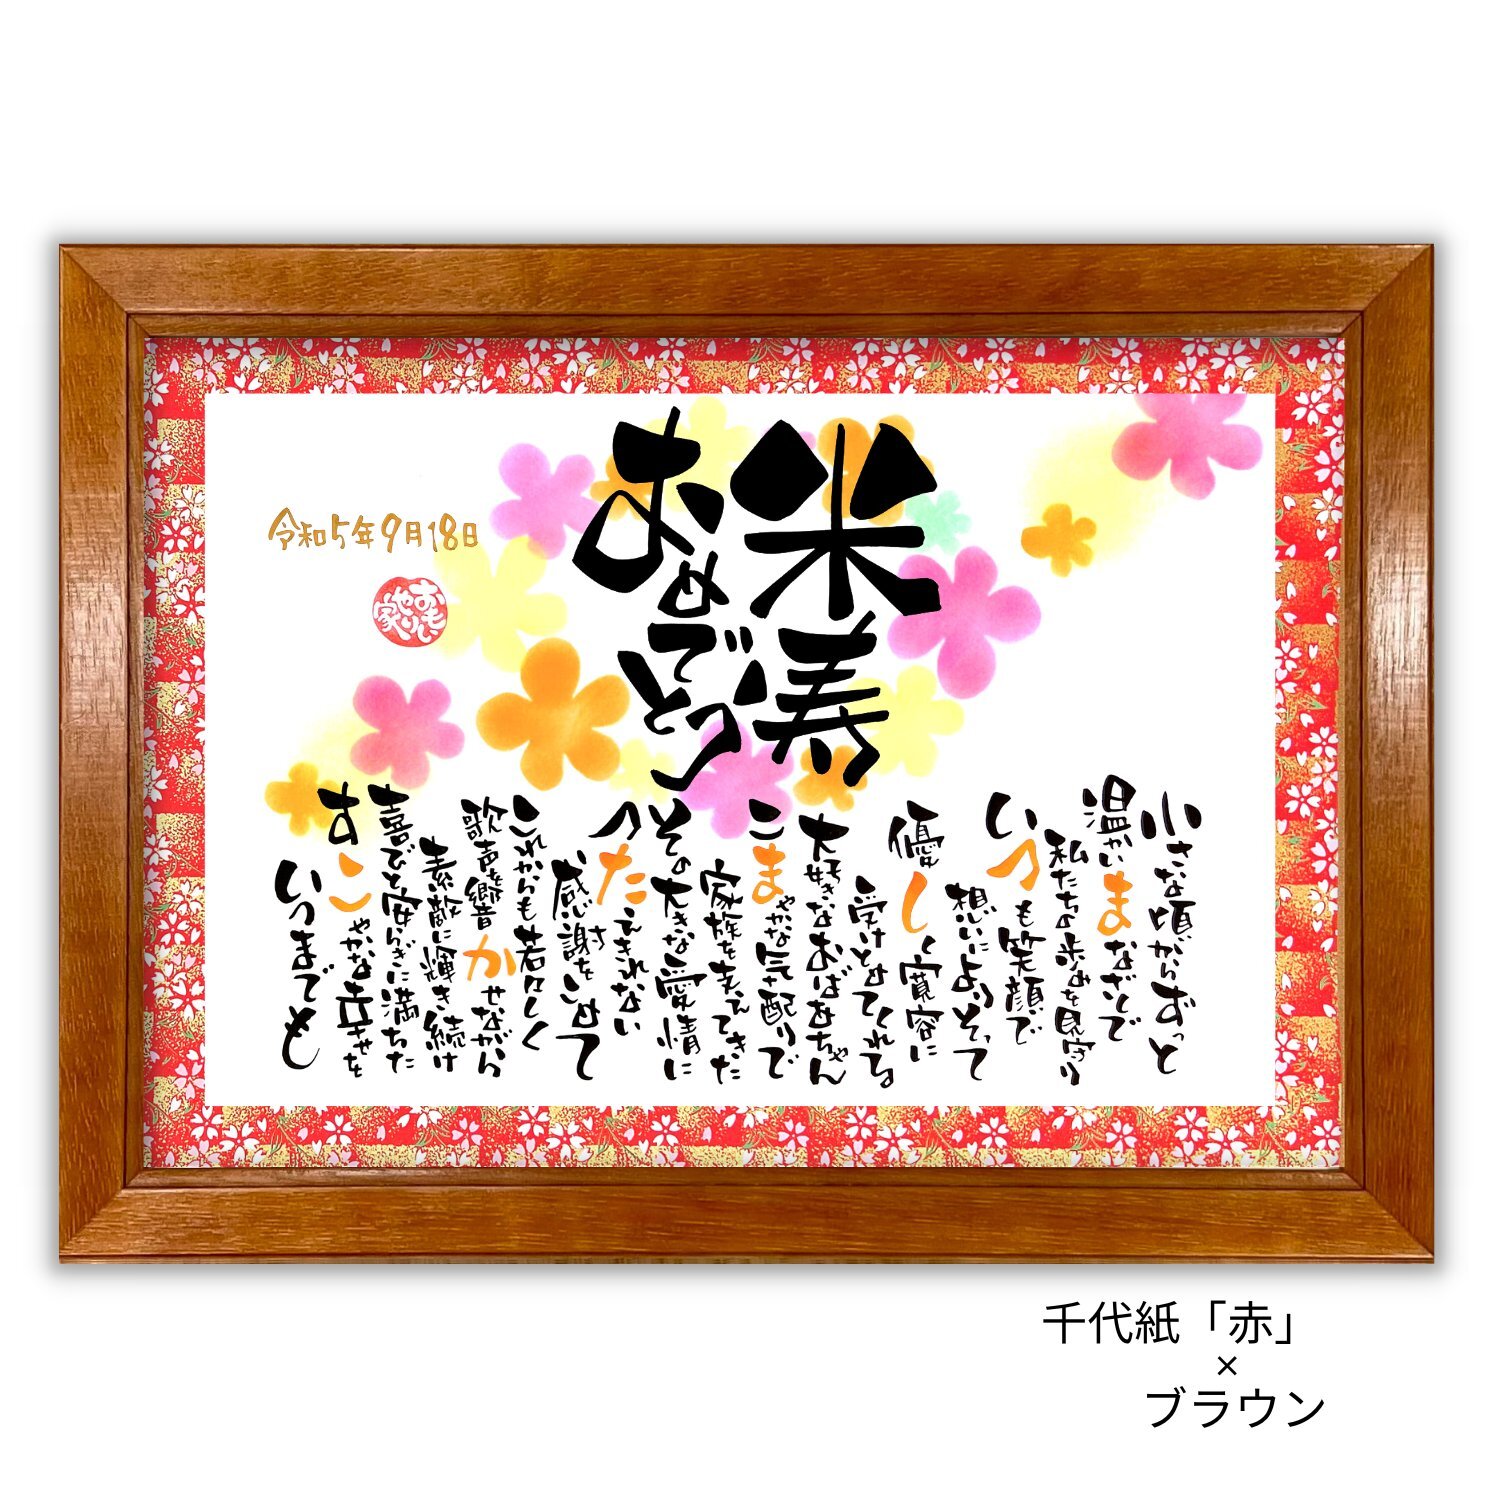 米寿
おめでとう
令和5年9月18日
おもいやり家
小さな頃からずっと
温かいまなざしで
私たちの歩みを見守り
いつも笑顔で
想いによりそって
優しく寛容に
受けとめてくれる
大好きなおばあちゃん
こまやかな気配りで
家族を支えてきた
その大きな愛情に
つたえきれない
感謝をこめて
これからも若々しく
歌声を響かせながら
素敵に輝き続け
喜びと安らぎに満ちた
すこやかな幸せを
いつまでも
千代紙「赤」
×
ブラウン